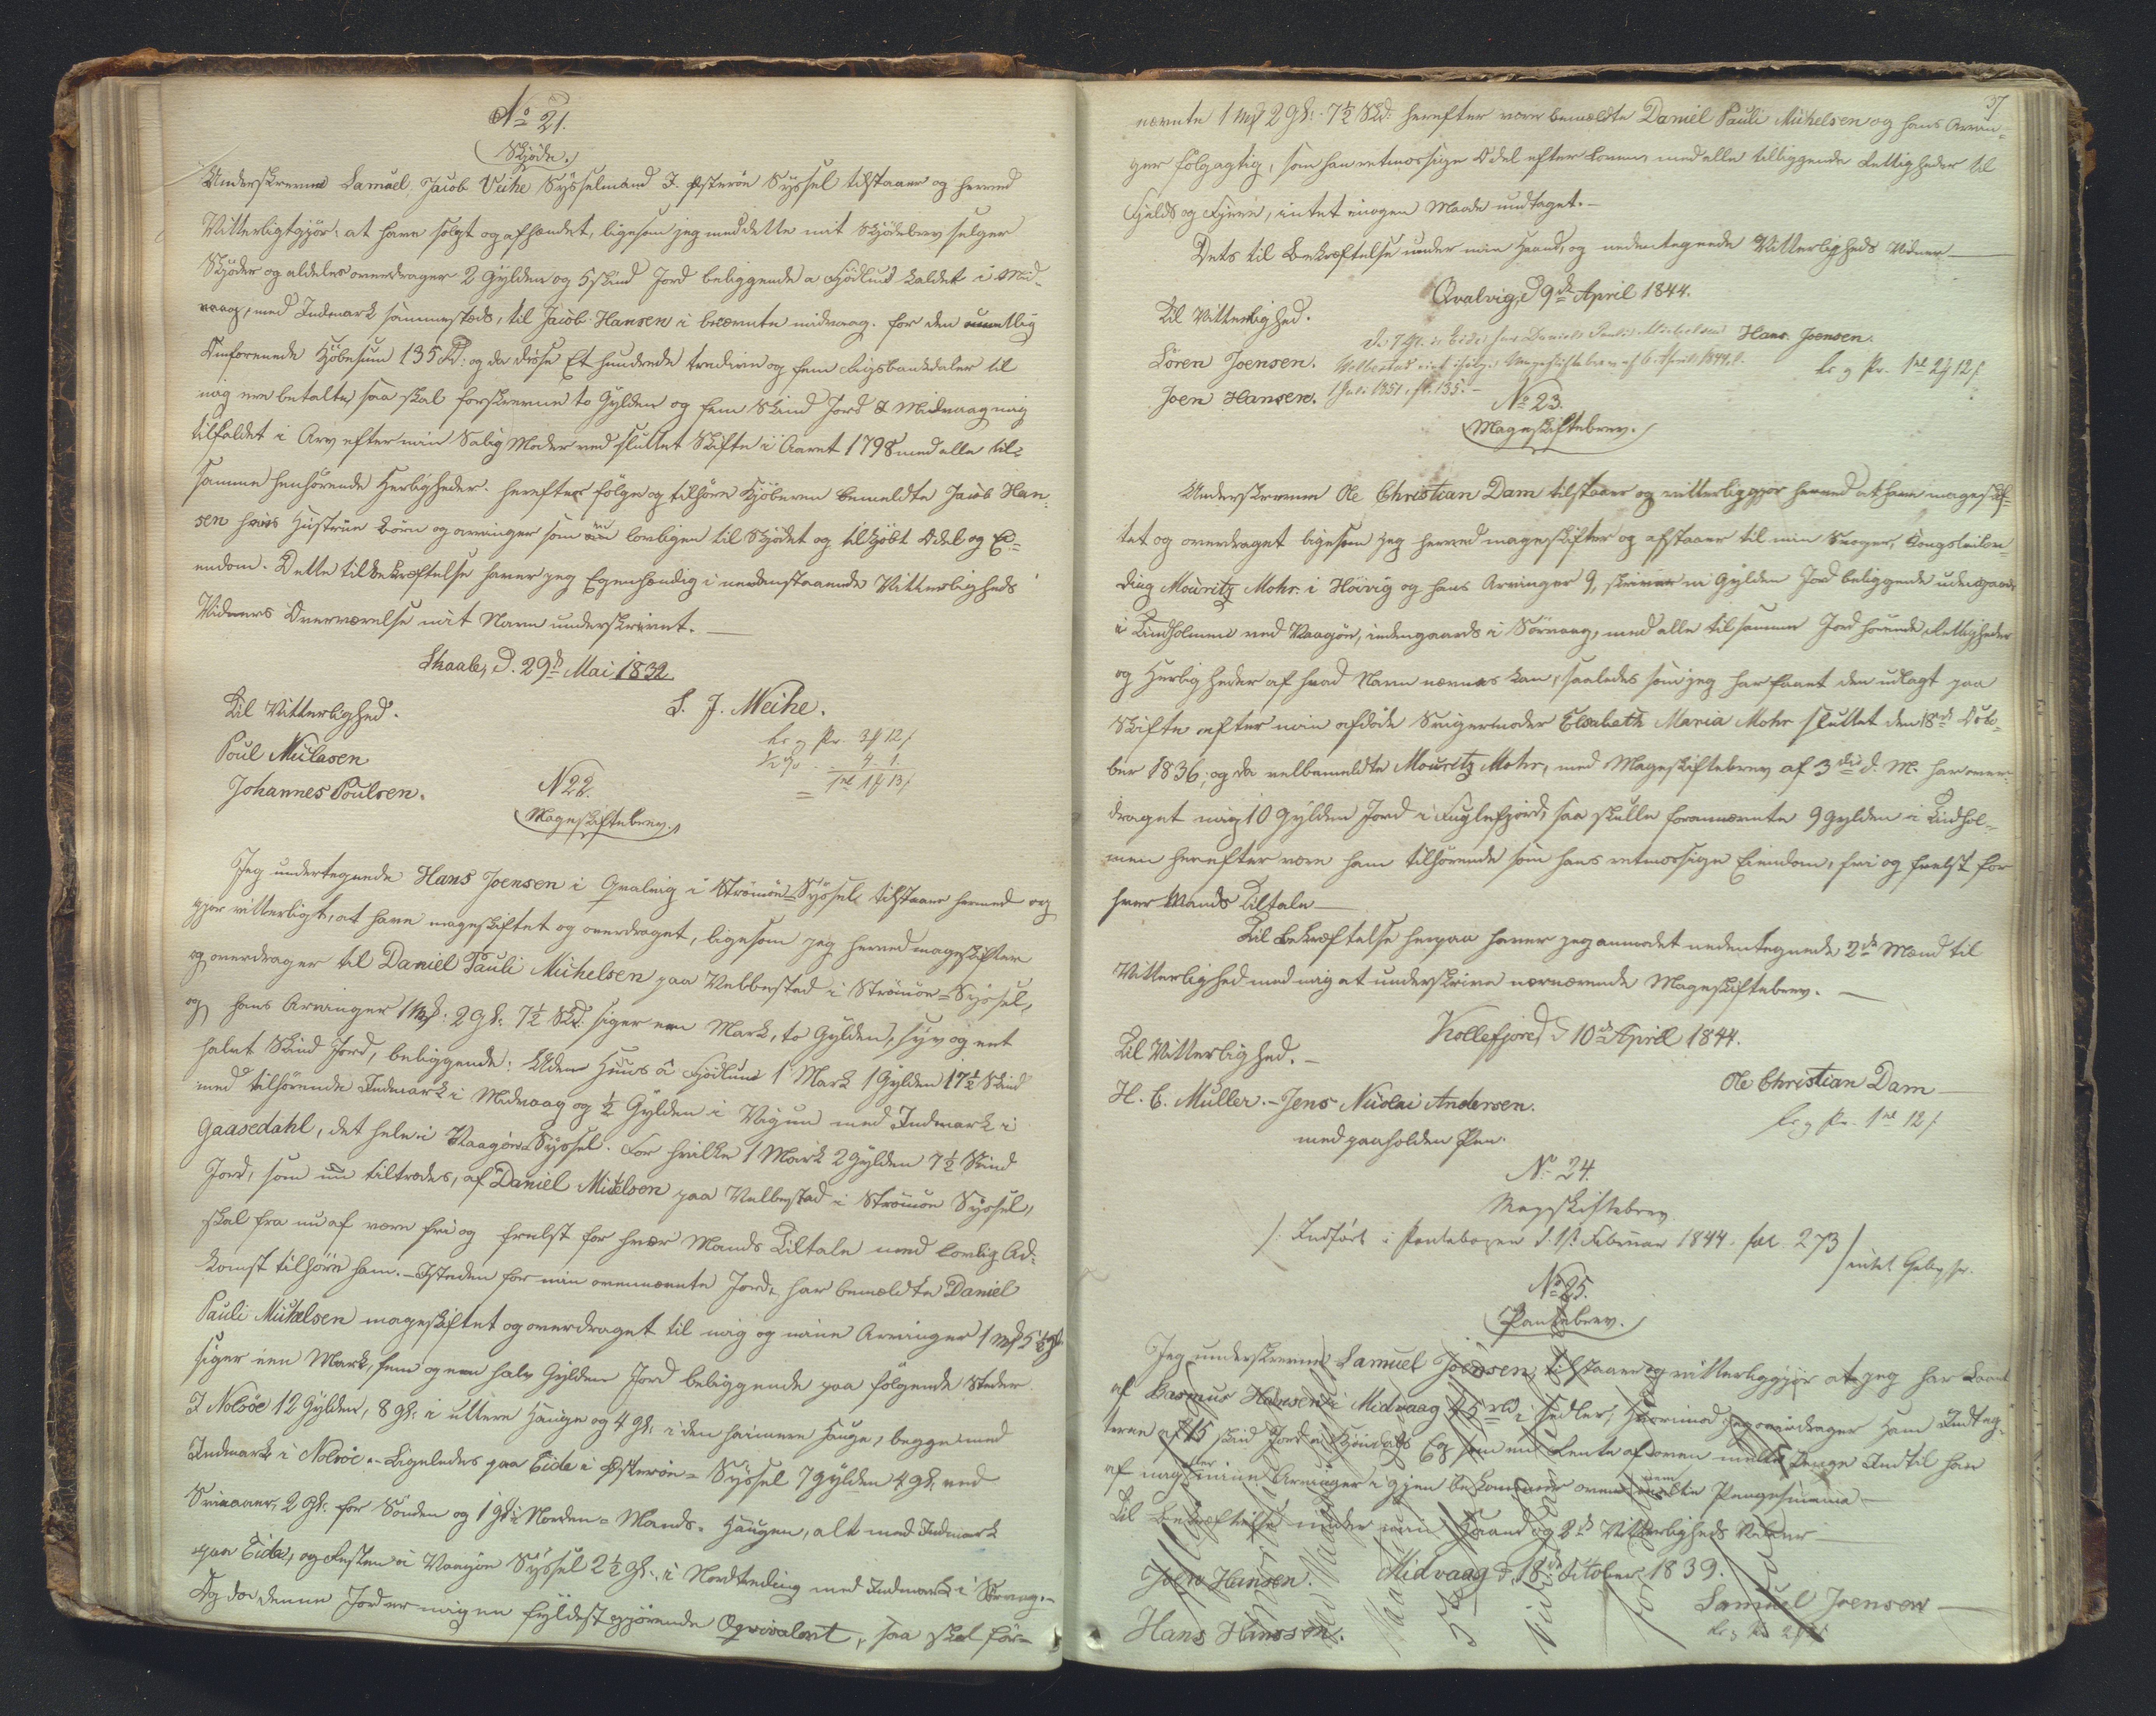 No 21.
Skjöde.
Underskrevne Samuel Jacob Veihe Sysselmand I. Østerøe Syssel tilstaaer og herved
Vitterligtgjör: at have solgt og afhændet, ligesom jeg med dette mit Skjödebrev selger
Skjöder og aldeles overdrager 2 Gylden og 5 skind Jord beliggende a Fjödlund kaldet i Mid-
vaag, med Indmark sammesteds, til Jacob Hansen i benævnte midvaag. for den mundtlig
Omforenede Kjöbesum 135 Rd: og da disse Et hundrede tredive og fem Rigsbankdaler til
mig ere betalte, saa skal forskrevne to Gylden og fem Skind Jord I Midvaag mig
tilfaldet i Arv efter min Salig Moder ved sluttet Skifte i Aaret 1798 med alle til
samme henhörende Herligheder. herefter fölge og tilhöre Kjöberen bemeldte Jacob Han-
sen hans Hustrue börn og arvinger som lovligen til Skjödet og tilkjöbt Odel og Ei-
endom. Dette til bekræftelse haver jeg Egenhændig i nedenstaaende Vitterligheds
Vidners Overværelse mit Navn underskrevet.
Skaale, d. 29de Mai 1832.
Til Vitterlighed.
S. J. Weihe.
Poul Niclasen
Johannes Poulsen.
N 22.
Mageskiftebrev.
Jeg undertegnede Hans Joensen i Qvalvig i Strömöe Syssel tilstaaer herved og
gjör vitterligt, at have mageskiftet og overdraget, ligesom jeg herved mageskifter
og overdrager til Daniel Pauli Michelsen paa Velbestad i Strömöe-Syssel,
og hans Arvinger 1 Mk: 2 Gl: 7½ Skd: siger een Mark, to Gylden, syv og eet
halvt Skind Jord, beliggende: Uden Huus â Fjödlund 1 Mark 1 Gylden 17½ Skind
med tilhörende Indmark i Midvaag og ½ Gylden i Vigun med Indmark i
Gaasedahl, det hele i Vaagöe Syssel. for hvilke 1 Mark 2 Gylden 7½ Skind
Jord, som nu tiltrædes, af Daniel Michelsen paa Velbestad i Strömöe Syssel,
skal fra nu af være fri og frelst for hver Mands Tiltale med lovlig Ad-
komst tilhöre ham. - Isteden for min ovennævnte Jord, har bemældte Daniel
Pauli Michelsen mageskiftet og overdraget til mig og mine Arvinger 1 Mk 5½ Gl
siger een Mark, fem og een halv Gylden Jord beliggende paa fölgende Steder
I Nolsöe 12 Gylden, 8 Gl: i uttere Hauge og 4 Gl: i den heimere Hauge, begge med
Indmark i Nolsöe. - Ligeledes paa Eide i Østeröe-Syssel 7 Gylden 4 Gl, ved
2 Gl: for Sönden og 1 Gl i Norden-Mands-Haugen, alt med Indmark
paa Eide, og Resten i Vaagöe Syssel 2½ Gl: i Nordtreding med Indmark i
Og da denne Jord er mig en fyldestgjörende Æqvivalent, saa skal for-
37
nævnte 1 Mk 2 Gl: 7½ Skd: herefter være bemeldte Daniel Pauli Michelsen og hans Arvin-
ger fölgagtig, som hans retmæssige Odel efter komme med alle tilliggende Rettigheder til
Fjelds og Fjære, intet i nogen Maade undtaget. -
Dets til Bekræftelse under min Haand, og nedentegnede Vitterligheds Vidner
Qvalvig, d 9de April 1844.
Til Vitterlighed.
Hans Joensen.
Sören Joensen.
Joen Hansen.
No 23.
Mageskiftebrev.
Underskrevne Ole Christian Dam tilstaaer og vitterliggjör herved at have mageskif-
tet og overdraget ligesom jeg herved mageskifter og afstaaer til min Svoger, Kongsleilen-
ding Mouritz Mohr i Hoivig og hans Arvinger 9, skriver ni Gylden Jord beliggende udengaards
i Tindholmen ved Vaagöe, indengaards i Sörvaag, med alle til samme Jord hörende Rettigheder
og Herligheder af hvad Navn nævnes kan, saaledes som jeg har faaet den udlagt paa
Skifte efter min afdöde Svigermoder Elsabeth Maria Mohr sluttet den 18de Octo-
ber 1836; og da velbemeldte Mouritz Mohr, med Mageskiftebrev af 3die d. M. har over-
draget mig 10 Gylden Jord i Fuglefjord, saa skulle forannævnte 9 Gylden i Tindhol-
men herefter være ham tilhörende som hans retmæssige Eiendom, fri og frelst for
hver Mands Tiltale
Til Bekræftelse herpaa haver jeg anmodet nedentegnede 2de Mænd til
Vitterlighed med mig at underskrive nærværende Mageskiftebrev. -
Kollefjord d 10de April 1844.
Til Vitterlighed. -
Ole Christian Dam
H. C. Müller. - Jens Nicolai Andersen.
med paaholden Pen.
No 24.
Mageskiftebrev
/: Indfört i Pantebogen d. 1st Februar 1844. fol. 273 / intet Gebyr.
No 25.
Pantebrev.
Jeg underskrevne Samuel Joensen, tilstaaer og vitterliggjör at jeg har Laant
af Rasmus Hansen i Midvaag 45 rbd i Sedler, hvorimod jeg overdrager ham Indteg-
terne af 15 skind Jord som en Rente af oven meldte Penge Indtil han
af mig eller mine Arvinger igjen bekommer oven meldte Pengesumma -
Til Bekræftelse under min Haand og 2de Vitterligheds Vidner -
Midvaag d. 18de October 1839.
Joen Hansen.
Samuel Joensen
Hans Hanssen.